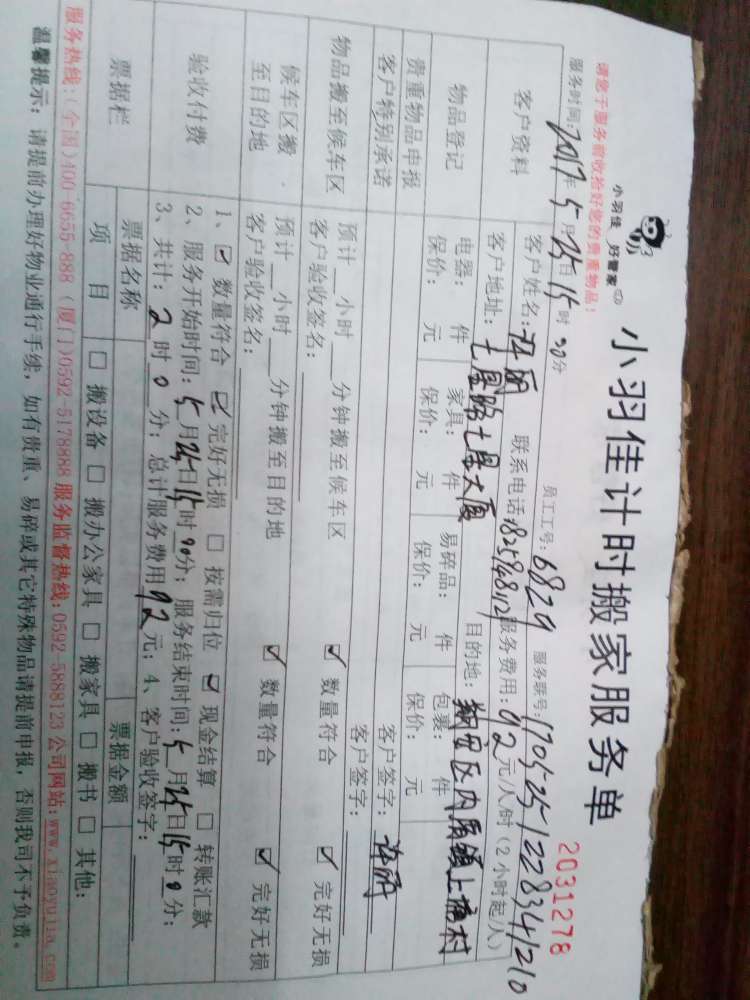 小羽佳计时搬家服务单
小羽佳 好管家
2031278
请您于服务前收捡好您的贵重物品！
员工工号：6829 服务联号：1705251228341210
服务时间：2017年5月25日15时30分
客户资料
客户姓名： 联系电话：
服务费用：92元/人/时（2小时起/人）
客户地址： 目的地：
物品登记
电器： 件 家具： 件 易碎品： 件 包裹： 件
保价： 元 保价： 元 保价： 元 保价： 元
贵重物品申报
客户特别承诺
客户签字：
客户签字：
物品搬至候车区
预计 小时 分钟搬至候车区 ☑ 数量符合 ☑ 完好无损
客户验收签名：
候车区搬至目的地
预计 小时 分钟搬至目的地 ☑ 数量符合 ☑ 完好无损
客户验收签名：
验收付费
1、☑ 数量符合 ☑ 完好无损 □ 按需归位 ☑ 现金结算 □ 转账汇款
2、服务开始时间：5月25日15时 分；服务结束时间：5月25日15时0分；
3、共计：2时0分；总计服务费用92元；4、客户验收签字：
票据栏
票据名称 票据金额
项目 □ 搬设备 □ 搬办公家具 □ 搬家具 □ 搬书 □ 其他：
服务热线：（全国）400-6655-888（厦门）0592-5178888 服务监督热线：0592-5888123 公司网站：www.xiaoyujia.com
温馨提示：请提前办理好物业通行手续，如有贵重、易碎或其它特殊物品请提前申报，否则我司不予负责。